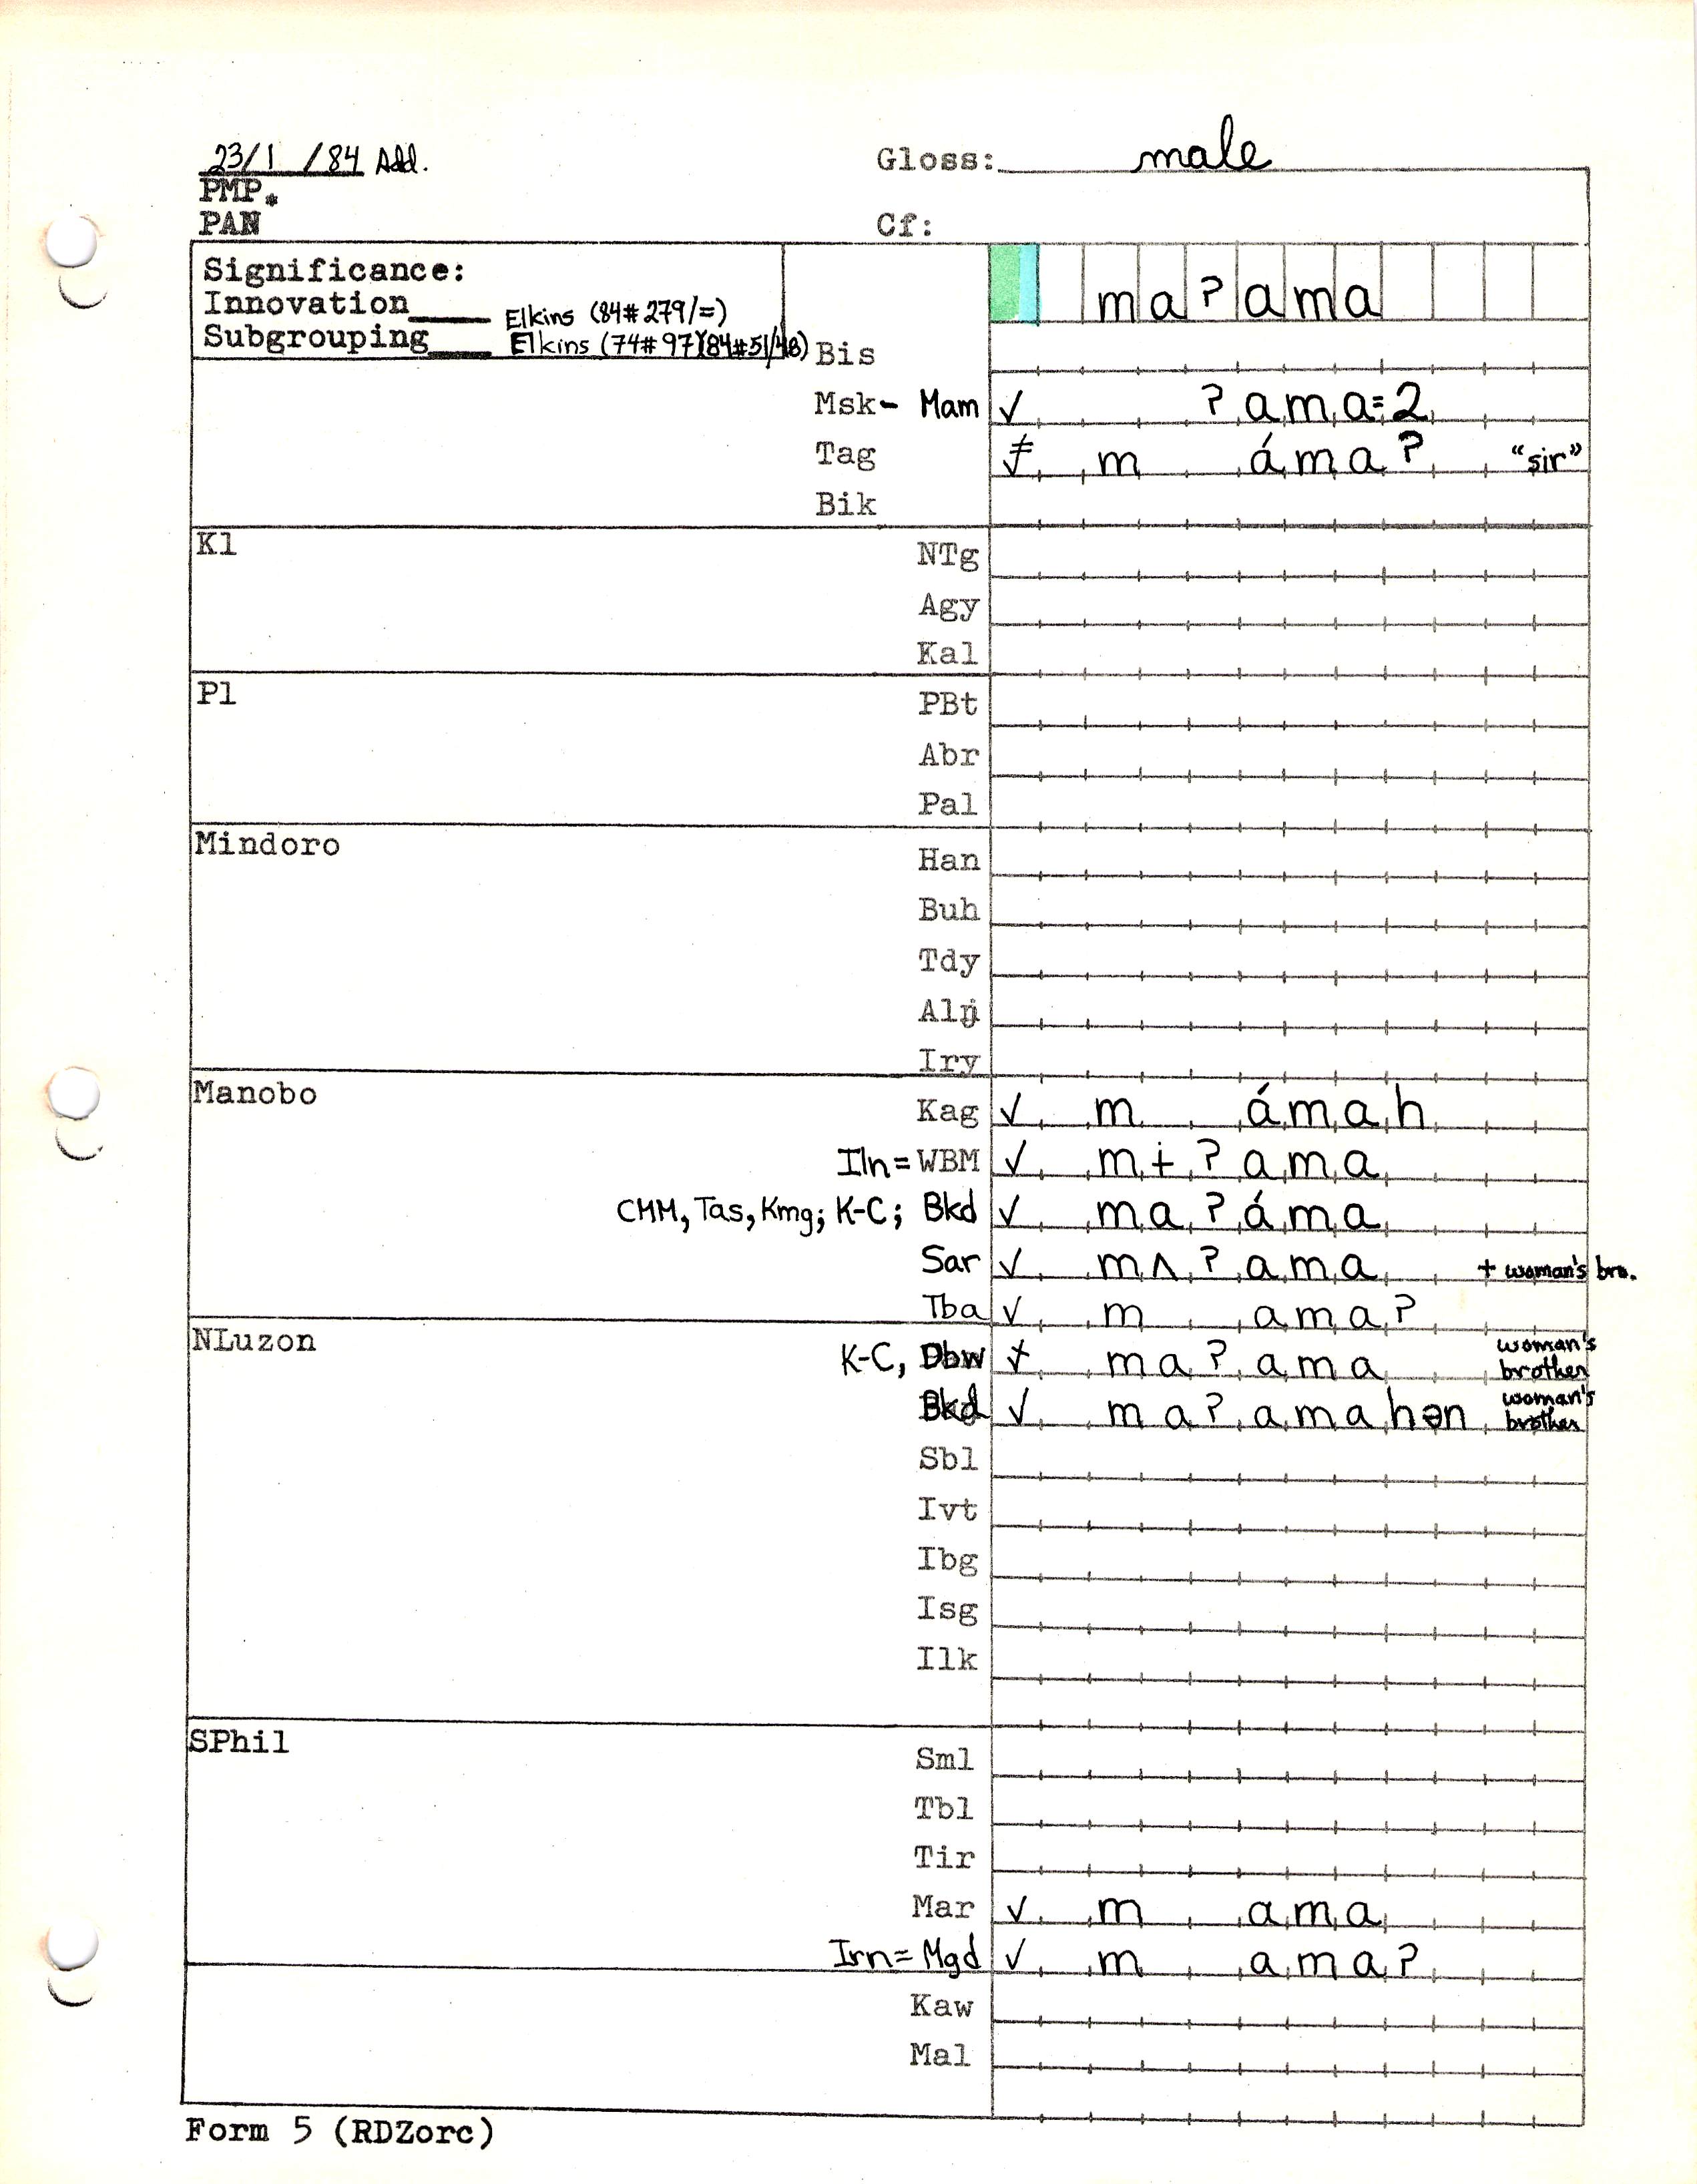 23/1 /84 Add. Gloss: male
PMP*
PAN Cf:
Significance: ma?ama
Innovation____ Elkins (84#279/=)
Subgrouping____ Elkins (74#97)(84#51/48) Bis
Msk- Mam ✓ ?ama=2
Tag ≠ máma? "sir"
Bik
Kl NTg
Agy
Kal
Pl PBt
Abr
Pal
Mindoro Han
Buh
Tdy
Iry
Manobo Kag ✓ mámah
Iln=WBM ✓ mɨ?ama
CMM, Tas, Kmg; K-C; Bkd ✓ ma?áma
Sar ✓ mʌ?ama + woman's bro.
Tba ✓ mama?
NLuzon K-C, Dbw ma?ama woman's brother
Bkd ✓ ma?amahən woman's brother
Sbl
Ivt
Ibg
Isg
Ilk
SPhil Sml
Tbl
Tir
Mar ✓ mama
Irn=Mgd ✓ mama?
Kaw
Mal
Form 5 (RDZorc)